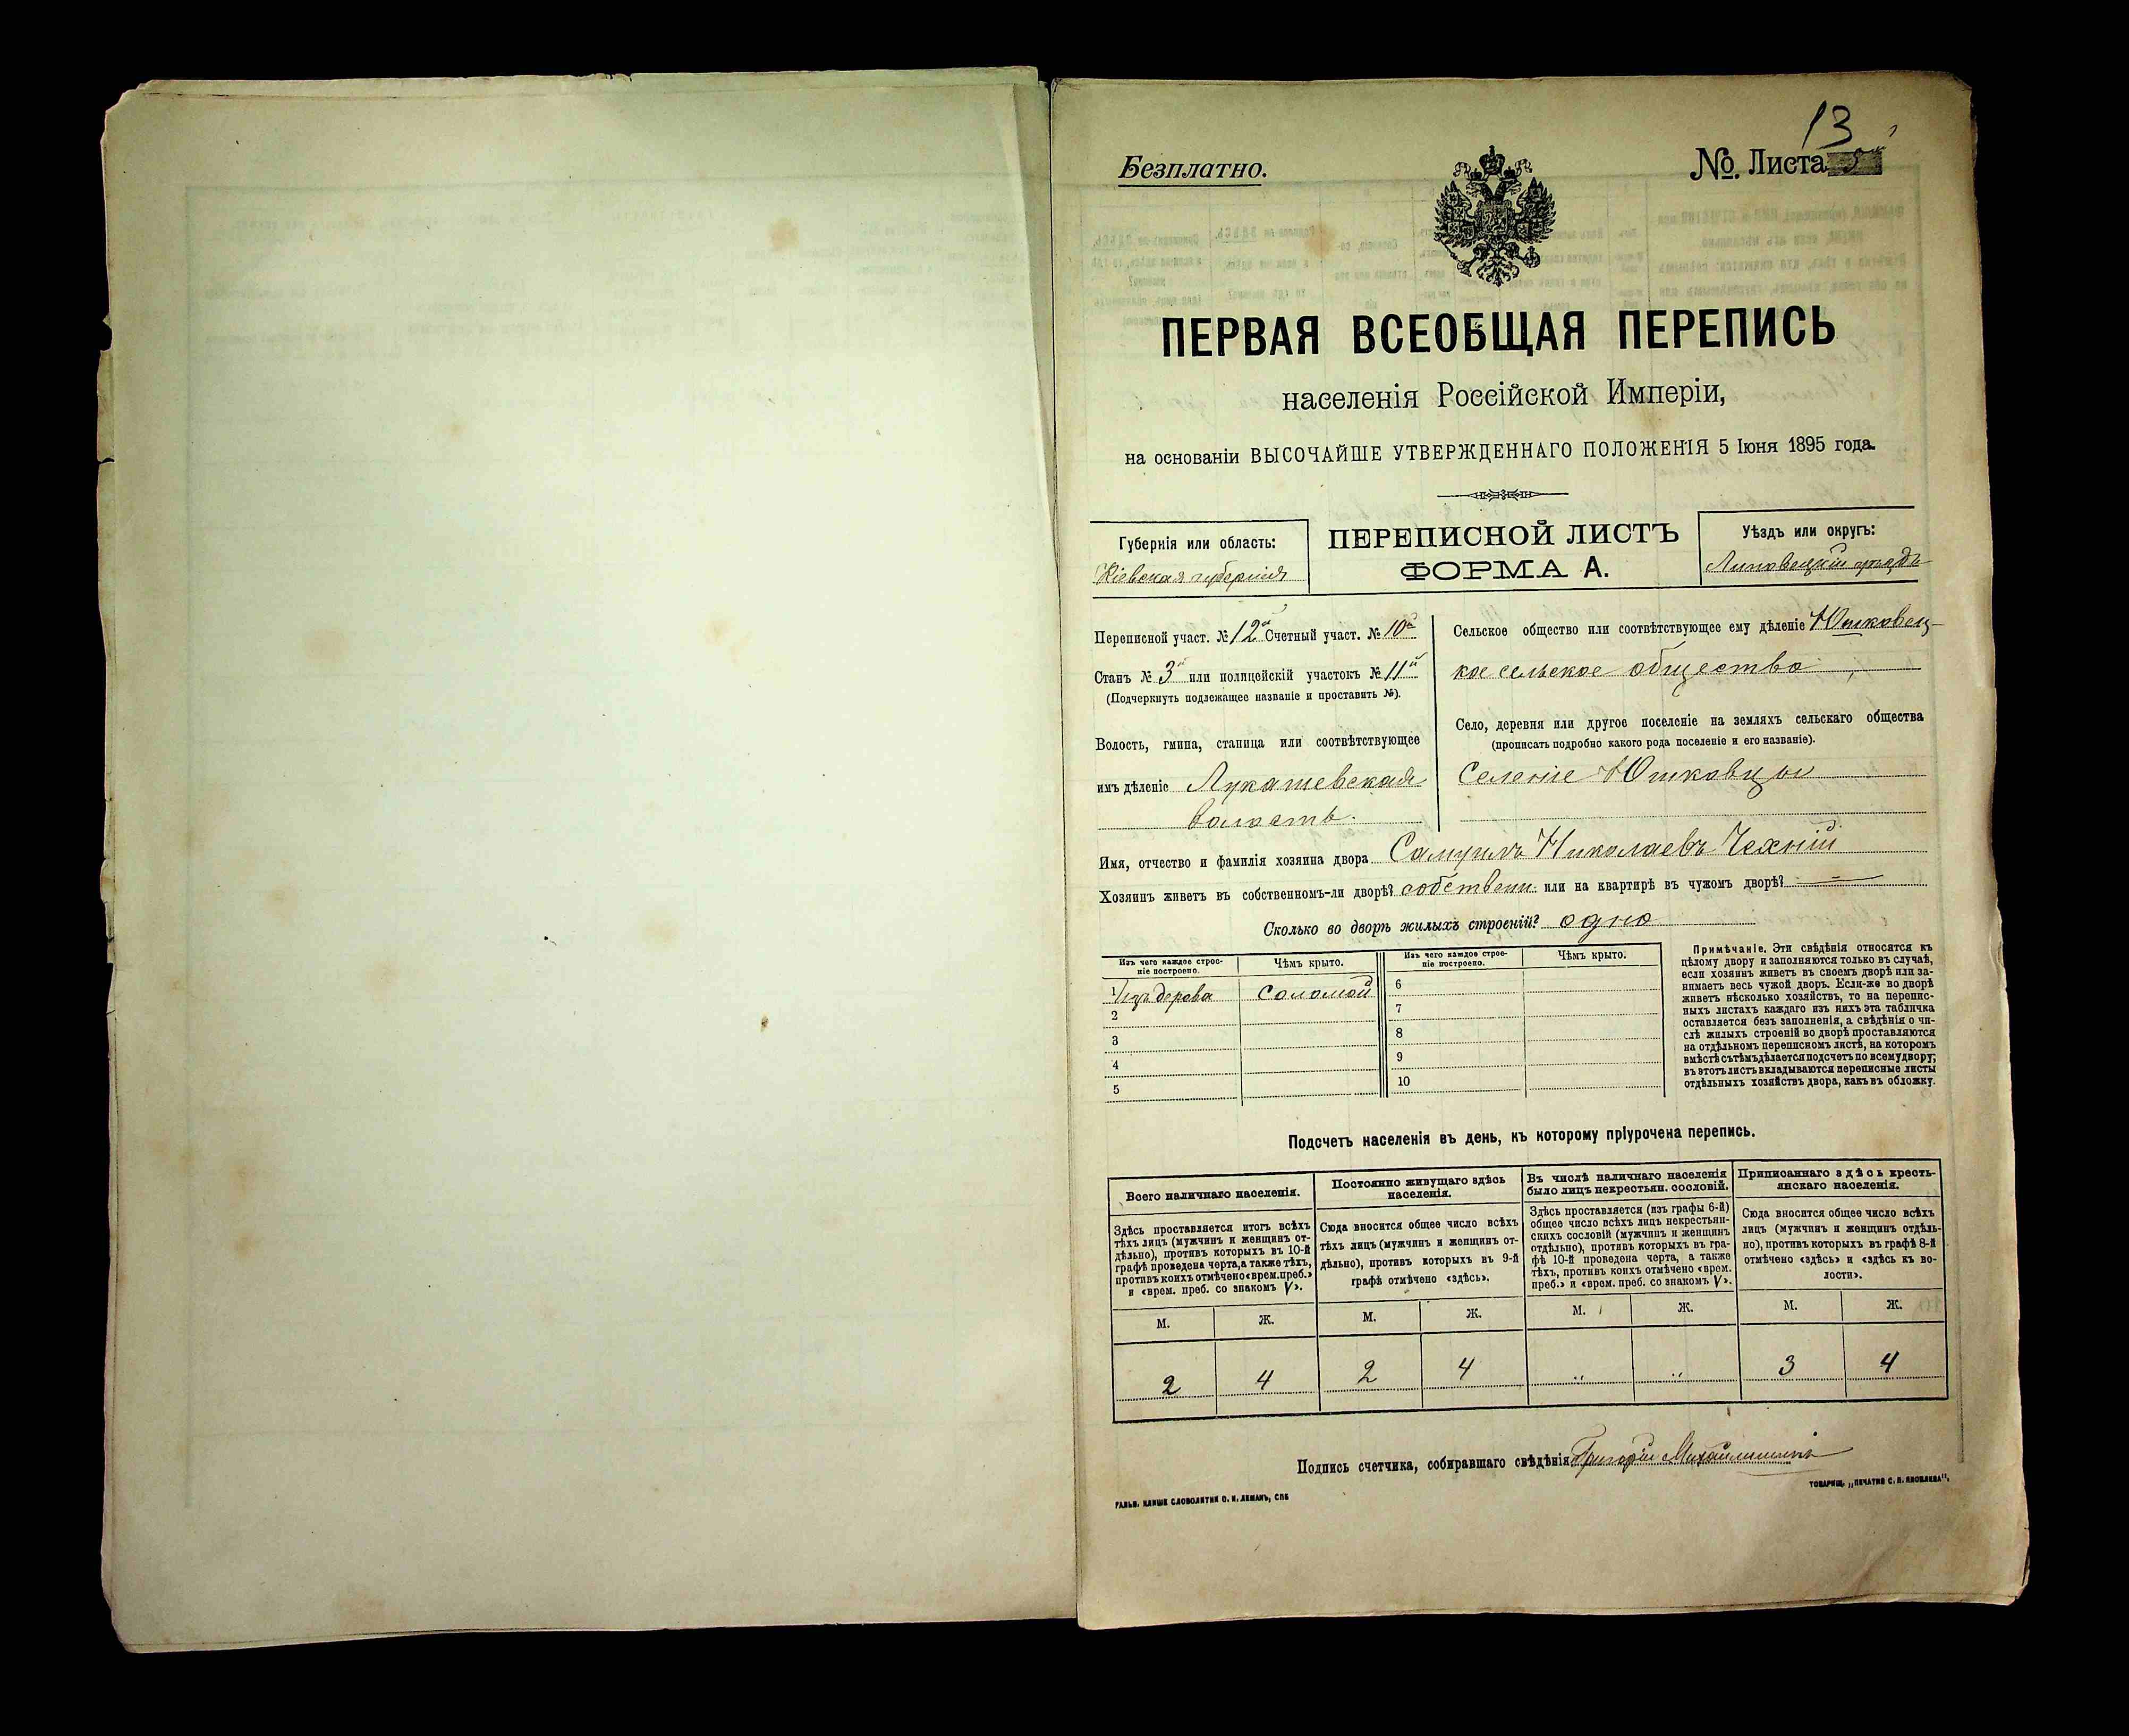 13
Безплатно.
№. Листа
ПЕРВАЯ ВСЕОБЩАЯ ПЕРЕПИСЬ
населенія Россійской Имперіи,
на основаніи ВЫСОЧАЙШЕ УТВЕРЖДЕННАГО ПОЛОЖЕНІЯ 5 Іюня 1895 года.
Губернія или область:
Кіевская губернія
ПЕРЕПИСНОЙ ЛИСТЪ
ФОРМА А.
Уѣздъ или округъ:
Липовецкій уѣздъ
Переписной участ. № 12й Счетный участ. № 10й
Станъ № 3й или полицейскій участокъ № 11й
(Подчеркнуть подлежащее названіе и проставить №).
Волость, гмина, станица или соотвѣтствующее
имъ дѣленіе Лукашевская
волость.
Сельское общество или соотвѣтствующее ему дѣленіе Юшковец-
кое сельское общество
Село, деревня или другое поселеніе на земляхъ сельскаго общества
(прописать подробно какого рода поселеніе и его названіе).
Селеніе Юшковцы
Имя, отчество и фамилія хозяина двора Самуилъ Николаевъ Чехній
Хозяинъ живетъ въ собственномъ-ли дворѣ? собственн. или на квартирѣ въ чужомъ дворѣ? —
Сколько во дворѣ жилыхъ строеній? одно
Изъ чего каждое строе-
ніе построено.
Чѣмъ крыто.
Изъ чего каждое строе-
ніе построено.
Чѣмъ крыто.
1 изъ дерева соломой
2
3
4
5
6
7
8
9
10
Примѣчаніе. Эти свѣдѣнія относятся къ
цѣлому двору и заполняются только въ случаѣ,
если хозяинъ живетъ въ своемъ дворѣ или за-
нимаетъ весь чужой дворъ. Если-же во дворѣ
живетъ нѣсколько хозяйствъ, то на перепис-
ныхъ листахъ каждаго изъ нихъ эта табличка
оставляется безъ заполненія, а свѣдѣнія о чи-
слѣ жилыхъ строеній во дворѣ проставляются
на отдѣльномъ переписномъ листѣ, на которомъ
вмѣстѣ съ тѣмъ дѣлается подсчетъ по всему двору;
въ этотъ листъ вкладываются переписные листы
отдѣльныхъ хозяйствъ двора, какъ въ обложку.
Подсчетъ населенія въ день, къ которому пріурочена перепись.
Всего наличнаго населенія.
Здѣсь проставляется итогъ всѣхъ
тѣхъ лицъ (мужчинъ и женщинъ от-
дѣльно), противъ которыхъ въ 10-й
графѣ проведена черта, а также тѣхъ,
противъ коихъ отмѣчено «врем. преб.»
и «врем. преб. со знакомъ V».
Постоянно живущаго здѣсь
населенія.
Сюда вносится общее число всѣхъ
тѣхъ лицъ (мужчинъ и женщинъ от-
дѣльно), противъ которыхъ въ 9-й
графѣ отмѣчено «здѣсь».
Въ числѣ наличнаго населенія
было лицъ некрестьян. сословій.
Здѣсь проставляется (изъ графы 6-й)
общее число всѣхъ лицъ некрестьян-
скихъ сословій (мужчинъ и женщинъ
отдѣльно), противъ которыхъ въ гра-
фѣ 10-й проведена черта, а также
тѣхъ, противъ коихъ отмѣчено «врем.
преб.» и «врем. преб. со знакомъ V».
Приписаннаго здѣсь кресть-
янскаго населенія.
Сюда вносится общее число всѣхъ
лицъ (мужчинъ и женщинъ отдѣль-
но), противъ которыхъ въ графѣ 8-й
отмѣчено «здѣсь» и «здѣсь къ во-
лости».
М. Ж. М. Ж. М. Ж. М. Ж.
2 4 2 4 „ „ 3 4
Подпись счетчика, собиравшаго свѣдѣнія Григорій
ГАЛЬВ. КЛИШЕ СЛОВОЛИТНИ О. И. ЛЕМАНЪ, СПБ
ТОВАРИЩ. „ПЕЧАТНЯ С. П. ЯКОВЛЕВА“,